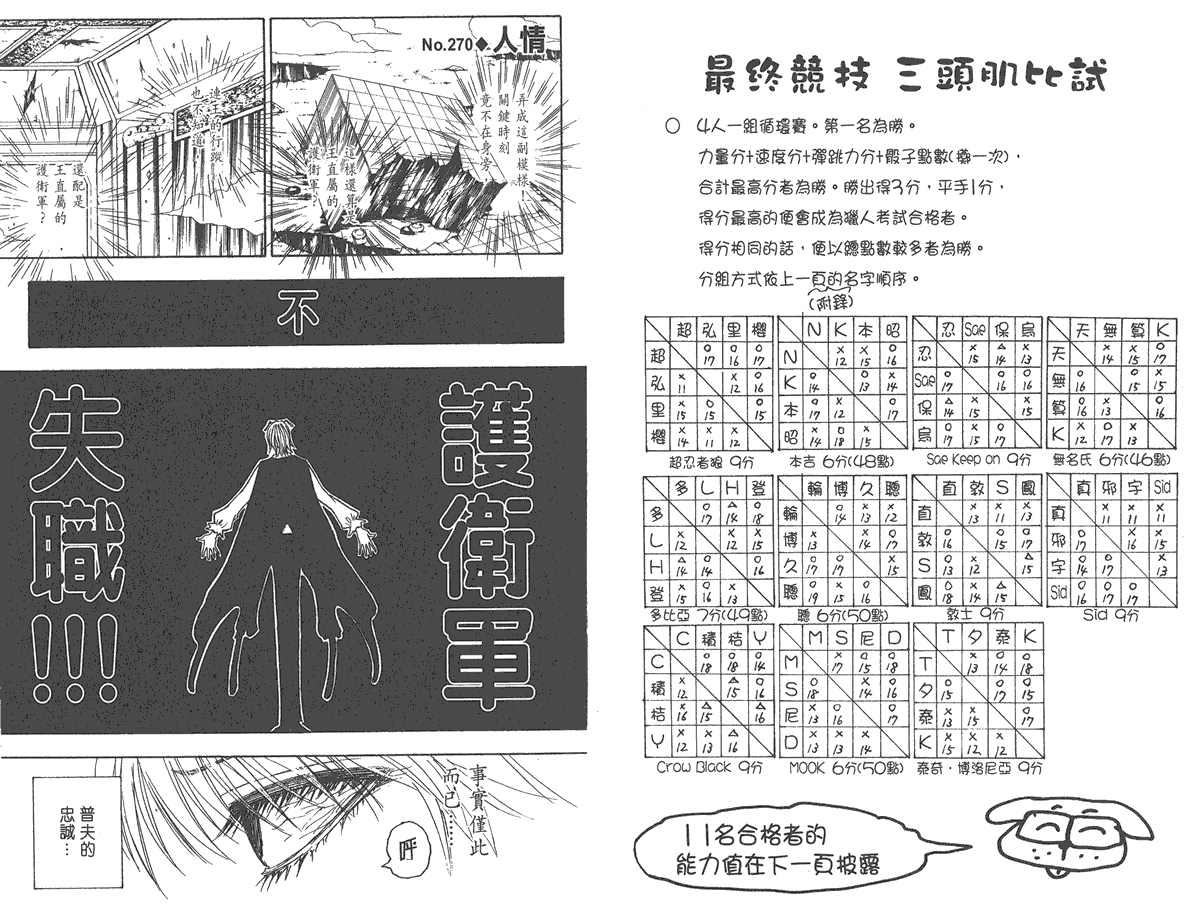 最終競技 三頭肌比試
○ 4人一組循環賽。第一名為勝。
力量分+速度分+彈跳力分+骰子點數(擲一次)，
合計最高分者為勝。勝出得3分，平手1分，
得分最高的便會成為獵人考試合格者。
得分相同的話，便以總點數較多者為勝。
分組方式依上一頁的名字順序。
(附錄)
超 弘 里 櫻
超 ○17 ○16 ○17
弘 ×11 ×12 ○16
里 ×15 ○15 ○15
櫻 ×14 ×11 ×12
超忍者狼 9分
N K 本 昭
N ×12 ×15 ○16
K ○14 ○13 ×14
本 ○17 ×12 ○17
昭 ×14 ○18 ×15
本吉 6分(48點)
忍 Sae 保 烏
忍 ×15 △14 ×13
Sae ○17 ○16 ○16
保 △14 ×15 ×15
烏 ○17 ×15 ○17
Sae Keep on 9分
天 無 算 K
天 ×14 ×15 ○17
無 ○16 ○15 ×15
算 ○16 ×13 ○16
K ×12 ○17 ×13
無名氏 6分(46點)
多 L H 登
多 ○17 △14 ○18
L ×12 ×12 ×15
H △14 ○14 ○16
登 ×15 ○16 ×13
多比亞 7分(49點)
輪 博 久 聰
輪 ○14 ×13 ×12
博 ×13 ×14 ○17
久 ○17 ○17 ×15
聰 ○19 ×15 ○16
聰 6分(50點)
直 敦 S 鳳
直 ×13 ×11 ×13
敦 ○16 ○15 ○17
S ○13 ×12 △15
鳳 ○18 ×14 △15
敦士 9分
真 邪 字 Sid
真 ×11 ×11 ×11
邪 ○17 ×16 ×15
字 ○14 ○17 ×13
Sid ○16 ○17 ○17
Sid 9分
C 積 桔 Y
C ○18 ○18 ○14
積 ×12 △15 ○16
桔 ×16 △15 △16
Y ×12 ×13 △16
Crow Black 9分
M S 尼 D
M ×17 ○15 ○18
S ○18 ×14 ○16
尼 ×13 ○16 ○17
D ×13 ×13 ×14
MOOK 6分(50點)
T 夕 泰 K
T ×13 ○14 ○18
夕 ○15 ○17 ○15
泰 ×13 ×15 ○17
K ×15 ×12 ×12
泰奇・博洛尼亞 9分
11名合格者的
能力值在下一頁披露
No.270◆人情
弄成這副模樣！
關鍵時刻
竟不在身旁，
這樣還算是
王直屬的
護衛軍？
連王的行蹤
也不知道！
還配是
王直屬的
護衛軍？
不
護衛軍
失職!!!
事實僅此
而已……
呼
普夫的
忠誠…